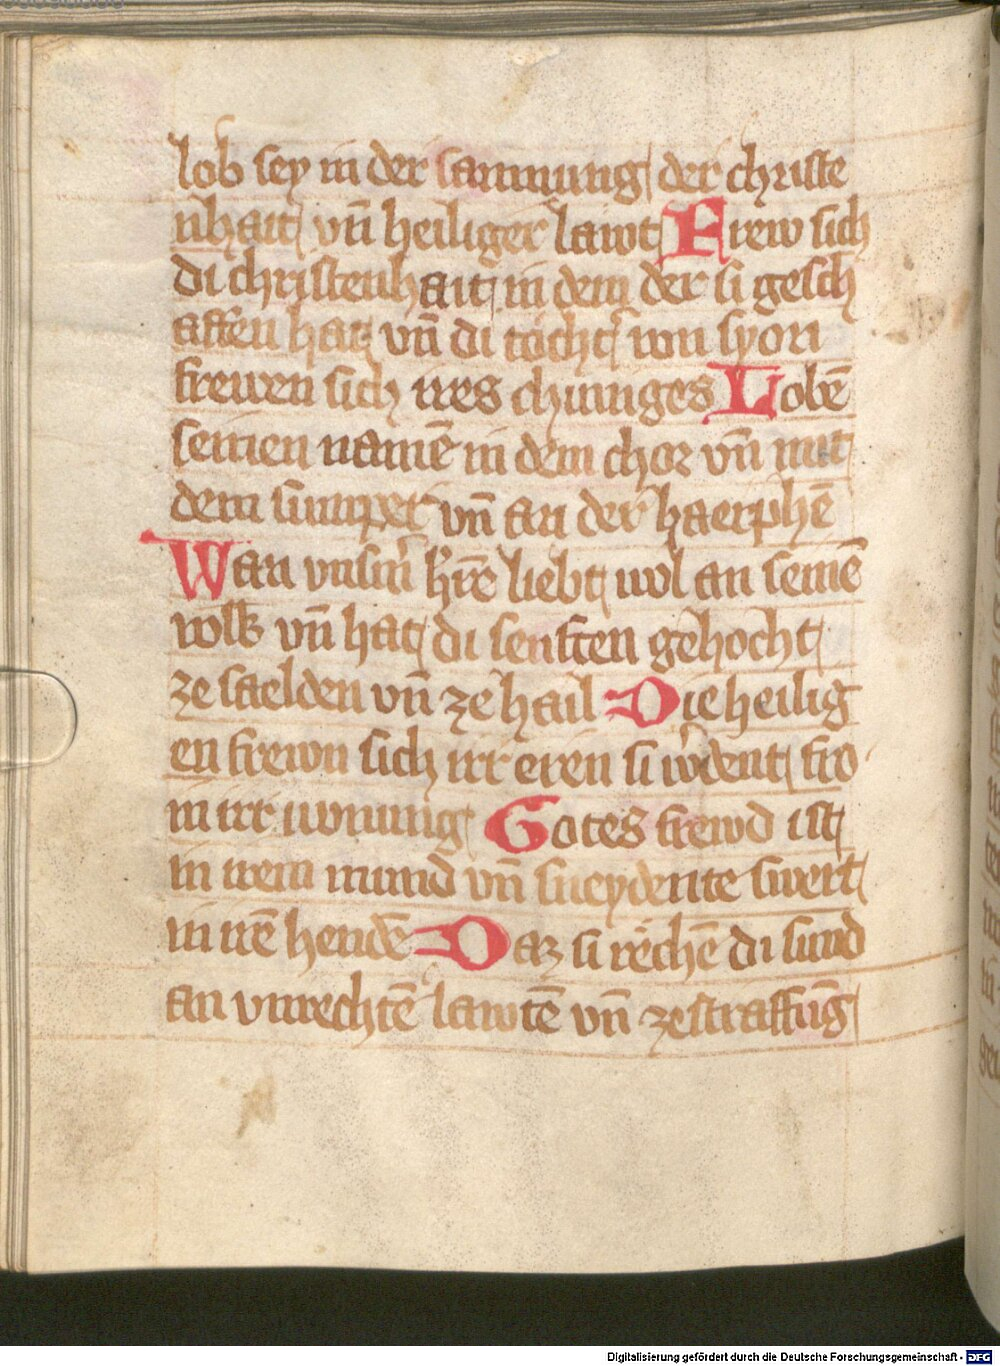 lob sey in der samnung der christe
nhait vn̄ heiliger lawt Frew sich
di christenhait in dem der si gesch
affen hat vn̄ di tocht͛ von syon
frewen sich irres chuniges Lobē
seinen namē in dem chor vn̄ mit
dem sumper vn̄ an der haerphē
Wan vnsm̄ h͛re liebt wol an seinē
volk vn̄ hat di senften gehocht
ze saelden vn̄ ze hail Die heilig
en frewn sich irr eren si w͛dent fro
in irr wonung Gotes frewd ist
in irem mund vn̄ sneydente swert
in irē hendē Daz si rechē di sund
an vnrechtē lawtē vn̄ ze straffūg
Digitalisierung gefördert durch die Deutsche Forschungsgemeinschaft - DFG